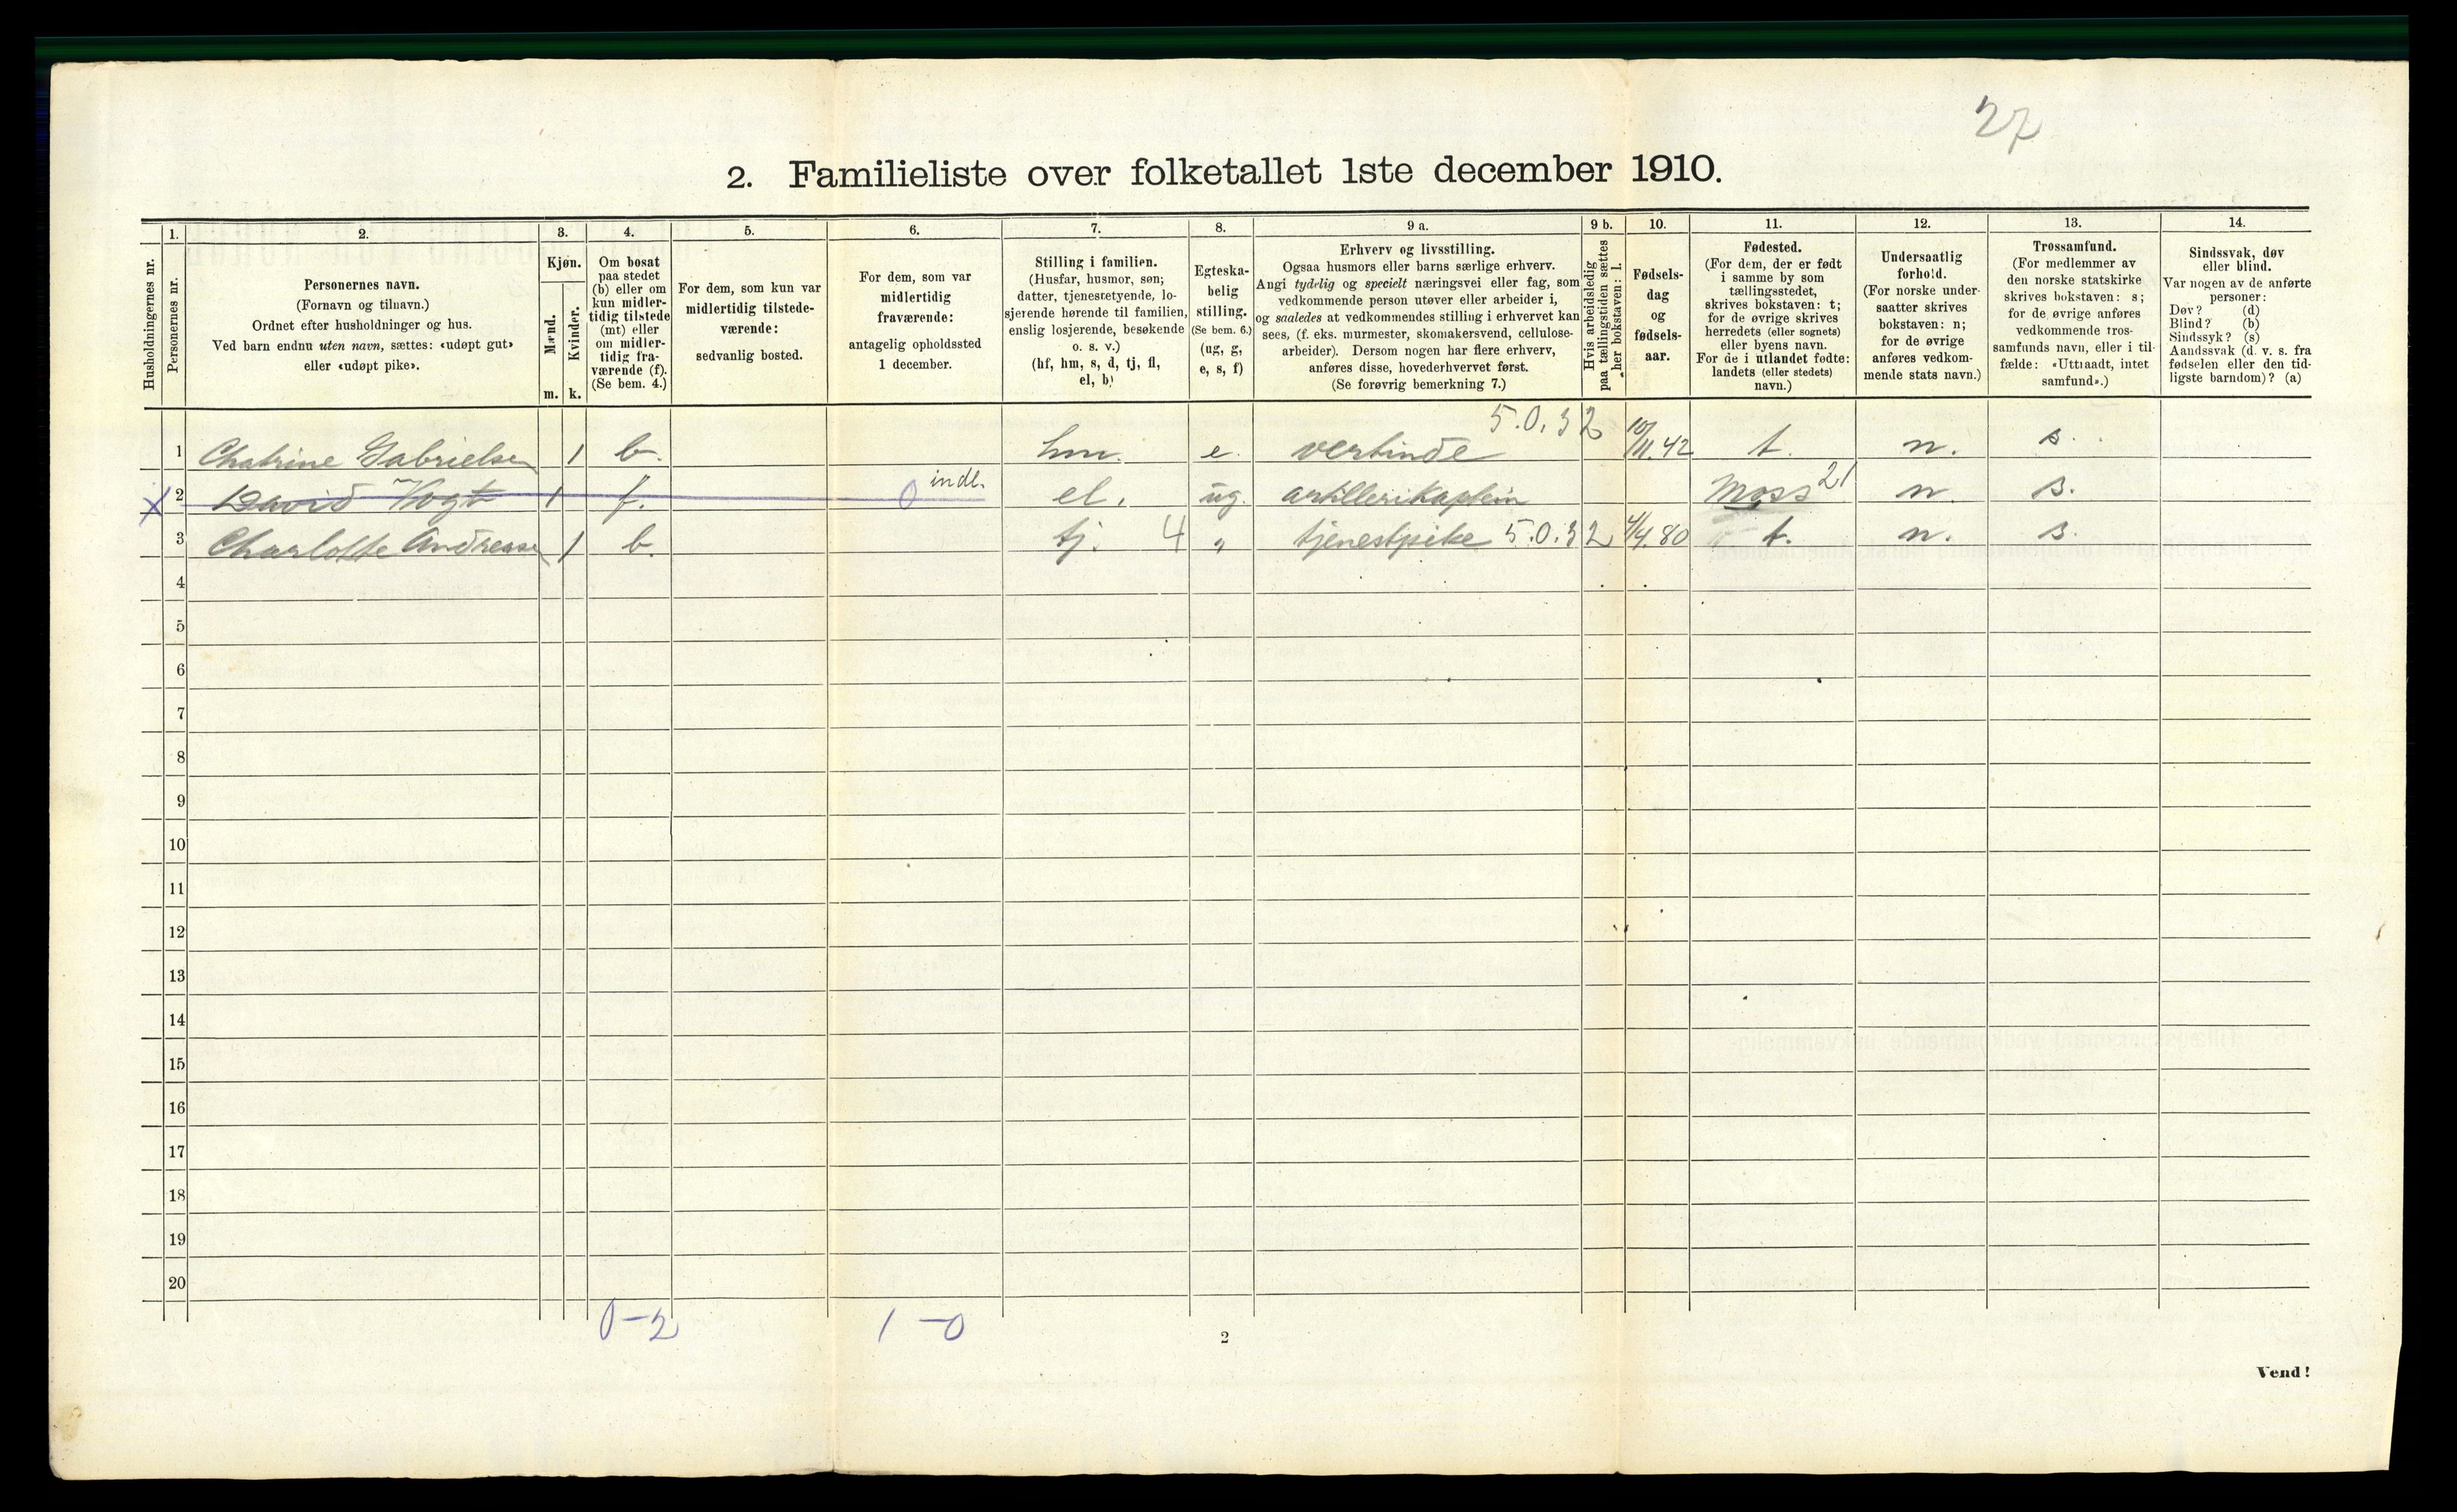 27
2. Familieliste over folketallet 1ste december 1910.
1. 2. 3. 4. 5. 6. 7. 8. 9 a. 9 b. 10. 11. 12. 13. 14.
Husholdningernes nr.
Personernes nr.
Personernes navn.
(Fornavn og tilnavn.)
Ordnet efter husholdninger og hus.
Ved barn endnu uten navn, sættes: «udøpt gut»
eller «udøpt pike».
Kjøn.
Mænd.
Kvinder.
m. k.
Om bosat
paa stedet
(b) eller om
kun midler-
tidig tilstede
(mt) eller
om midler-
tidig fra-
værende (f).
(Se bem. 4.)
For dem, som kun var
midlertidig tilstede-
værende:
sedvanlig bosted.
For dem, som var
midlertidig
fraværende:
antagelig opholdssted
1 december.
Stilling i familien.
(Husfar, husmor, søn;
datter, tjenestetyende, lo-
sjerende hørende til familien,
enslig losjerende, besøkende
o. s. v.)
(hf, hm, s, d, tj, fl,
el, b)
Egteska-
belig
stilling.
(Se bem. 6.)
(ug, g,
e, s, f)
Erhverv og livsstilling.
Ogsaa husmors eller barns særlige erhverv.
Angi tydelig og specielt næringsvei eller fag, som
vedkommende person utøver eller arbeider i,
og saaledes at vedkommendes stilling i erhvervet kan
sees, (f. eks. murmester, skomakersvend, cellulose-
arbeider). Dersom nogen har flere erhverv,
anføres disse, hovederhvervet først.
(Se forøvrig bemerkning 7.)
Hvis arbeidsledig
paa tællingstiden sættes
her bokstaven: l.
Fødsels-
dag
og
fødsels-
aar.
Fødested.
(For dem, der er født
i samme by som
tællingsstedet,
skrives bokstaven: t;
for de øvrige skrives
herredets (eller sognets)
eller byens navn.
For de i utlandet fødte:
landets (eller stedets)
navn.)
Undersaatlig
forhold.
(For norske under-
saatter skrives
bokstaven: n;
for de øvrige
anføres vedkom-
mende stats navn.)
Trossamfund.
(For medlemmer av
den norske statskirke
skrives bokstaven: s;
for de øvrige anføres
vedkommende tros-
samfunds navn, eller i til-
fælde: «Uttraadt, intet
samfund».)
Sindssvak, døv
eller blind.
Var nogen av de anførte
personer:
Døv? (d)
Blind? (b)
Sindssyk? (s)
Aandssvak (d. v. s. fra
fødselen eller den tid-
ligste barndom)? (a)
1 Chatrine Gabrielsen 1 b. hm. e. vertinde 5.0.32 10/11.42 t. n. s.
X 2 David Vogt 1 f. 0 indl. el. ug. artillerikaptein Moss 21 n. s.
3 Charlotte Andreasen 1 b. tj. 4 „ tjenestpike 5.0.32 4/4.80 t. n. s.
4
5
6
7
8
9
10
11
12
13
14
15
16
17
18
19
20
0-2 1-0
2
Vend!